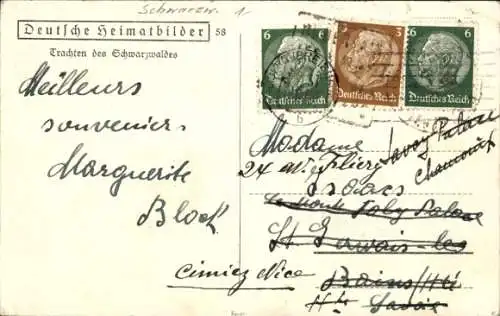 Schwarzw. 1
Deutsche Heimatbilder 58
Trachten des Schwarzwaldes
6 3 6
Deutsches Reich Deutsches Reich Deutsches Reich
b
Meilleurs
souvenirs
Marguerite
Block
Madame
24 av. Savoy Palace
Isaacs Chamonix
Le Mont Joly Palace
St Gervais-les
Bains
Hte Savoie
Cimiez Nice